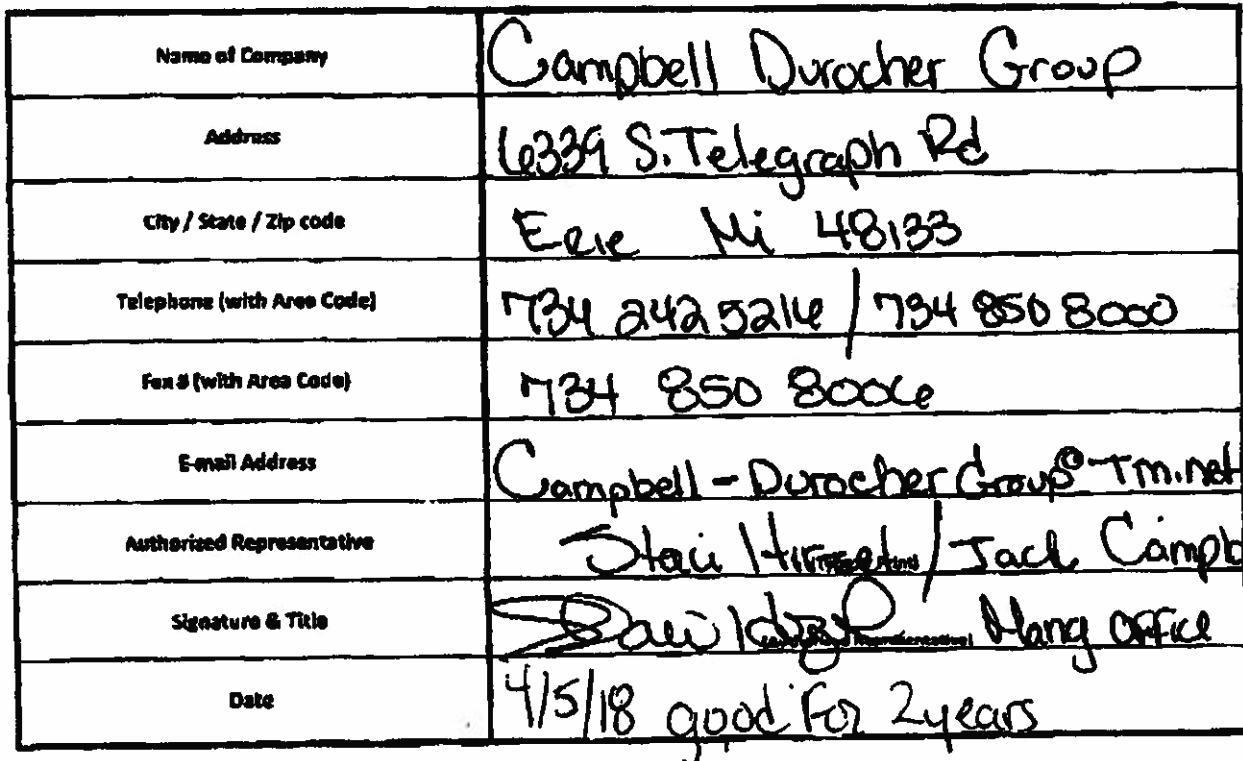 Name of Company Campbell Durocher Group
Address 6339 S. Telegraph Rd
City / State / Zip code Erie Mi 48133
Telephone (with Area Code) 734 242 5216 / 734 850 8000
Fax # (with Area Code) 734 850 8006
E-mail Address Campbell-DurocherGroup@Tm.net
Authorized Representative Staci / Jack Campb
Signature & Title Staci Mang Office
Date 4/5/18 good for 2 years